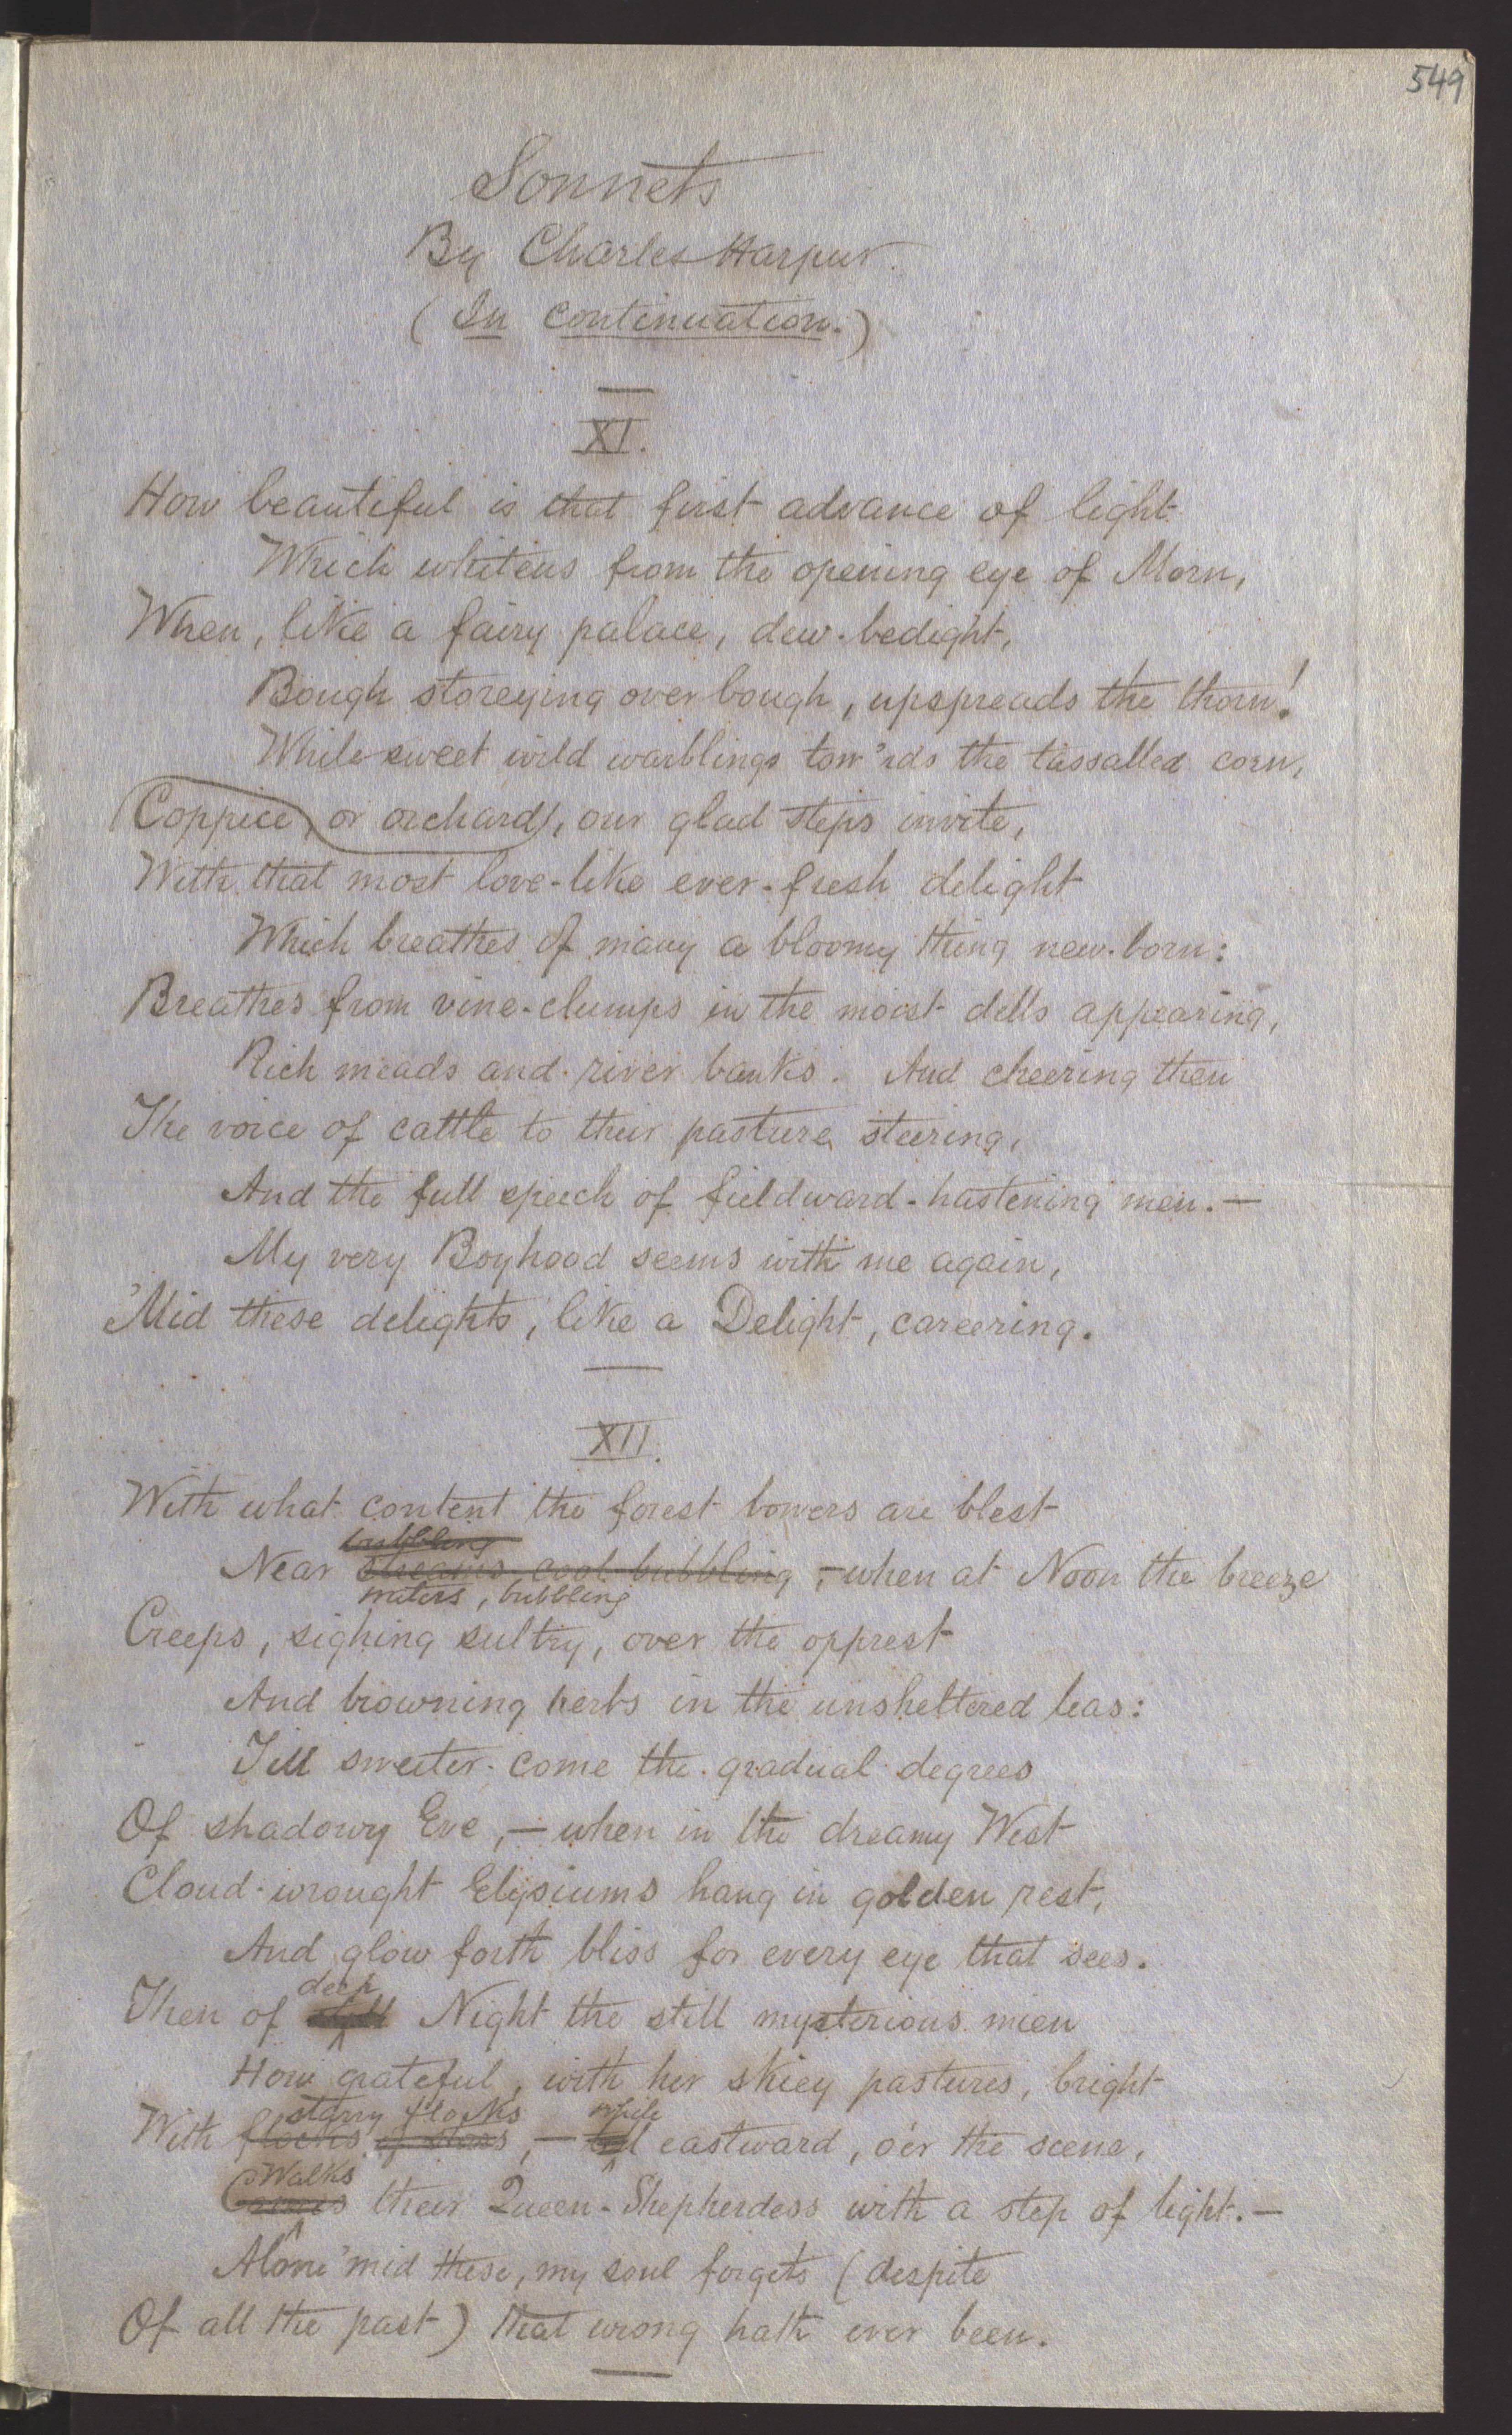 549
Sonnets
By Charles Harpur.
(In continuation.)
XI.
How beautiful is that first advance of light
Which whitens from the opening eye of Morn,
When, like a fairy palace, dew-bedight,
Bough storeying over bough, upspreads the thorn!
While sweet wild warblings tow'rds the tassalled corn,
Coppice, or orchard, our glad steps invite,
With that most love-like ever-fresh delight
Which breathes of many a bloomy thing new-born:
Breathes from vine-clumps in the moist dells appearing,
Rich meads and river banks. And cheering then
The voice of cattle to their pasture steering,
And the full speech of fieldward-hastening men.—
My very Boyhood seems with me again,
'Mid these delights, like a Delight, careering.
XII.
With what content the forest bowers are blest
bubbling
Near streams cool-bubbling,—when at Noon the breeze
waters, bubbling
Creeps, sighing sultry, over the opprest
And browning herbs in the unsheltered leas:
Till sweeter come the gradual degrees
Of shadowy Eve,—when in the dreamy West
Cloud-wrought Elysiums hang in golden rest,
And glow forth bliss for every eye that sees.
deep
Then of still Night the still mysterious mien
How grateful, with her skiey pastures, bright
starry flocks while
With flocks of stars,— eastward, o'er the scene,
Walks
their Queen-Shepherdess with a step of light.—
Alone 'mid these, my soul forgets (despite
Of all the past) that wrong hath ever been.